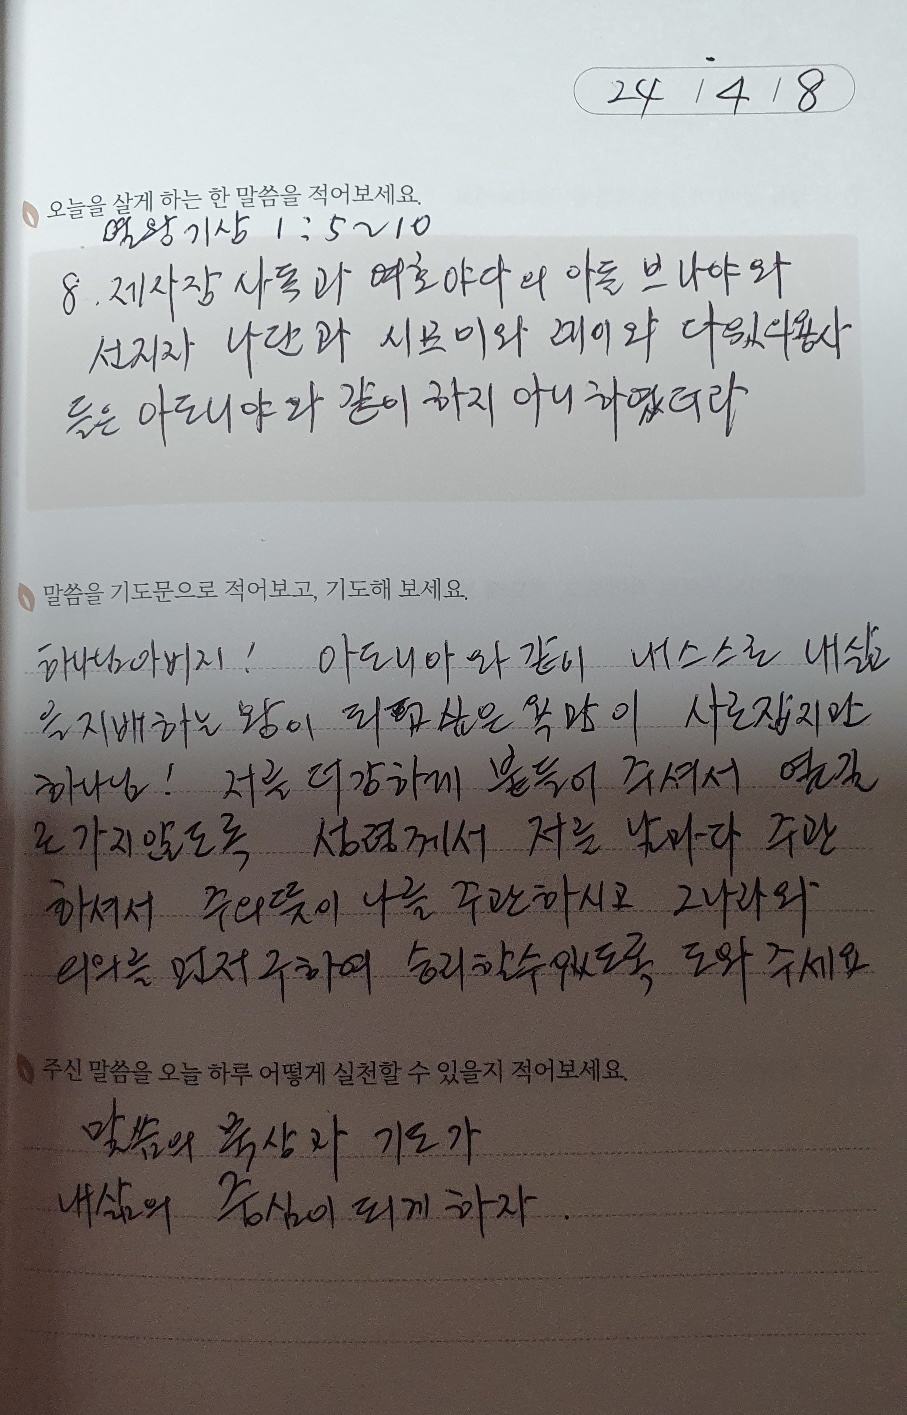 24 / 4 / 8
오늘을 살게 하는 한 말씀을 적어보세요.
열왕기상 1:5~10
8. 제사장 사독과 여호야다의 아들 브나야와
선지자 나단과 시므이와 레이와 다윗의용사
들은 아도니야와 같이 하지 아니하였더라
말씀을 기도문으로 적어보고, 기도해 보세요.
하나님아버지! 아도니아와같이 내스스로 내삶
을지배하는 왕이 되고싶은욕망이 사로잡지만
하나님! 저를 더강하게 붙들어 주셔서 옆길
로 가지않도록 성령께서 저를 날마다 주관
하셔서 주의뜻이 나를 주관하시고 그나라와
의의를 먼저 구하여 승리할수있도록 도와 주세요
주신 말씀을 오늘 하루 어떻게 실천할 수 있을지 적어보세요.
말씀의 묵상과 기도가
내삶의 중심이 되게 하자.